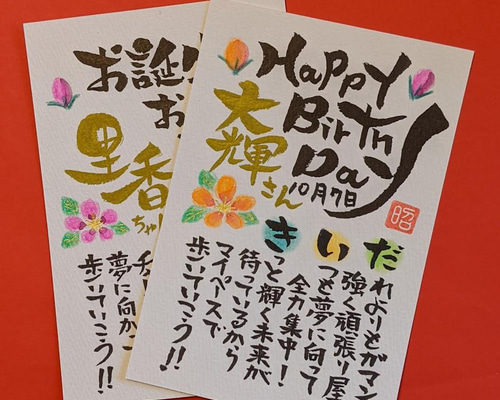 Happy
Birth
Day
大輝さん
10月7日
昭
だれよりもガマン
強く頑張り屋
いつも夢に向って
全力集中！
きっと輝く未来が
待っているから
マイペースで
歩いていこう!!
お誕
お
里香
ちゃ
夢に向かっ
歩いていこう!!